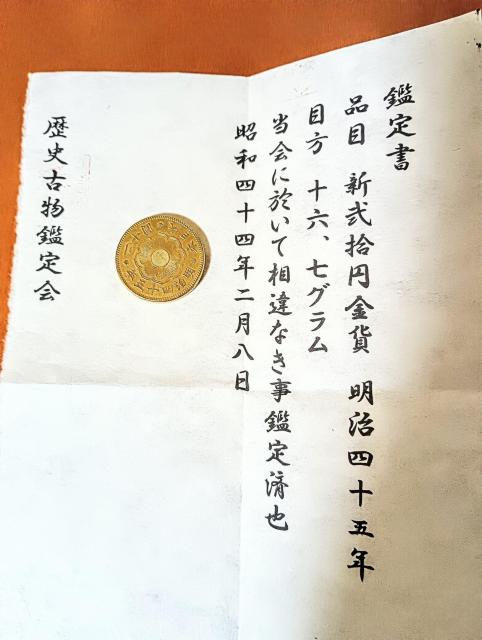 鑑定書
品目 新弐拾円金貨 明治四十五年
目方 十六、七グラム
当会に於いて相違なき事鑑定済也
昭和四十四年二月八日
歴史古物鑑定会